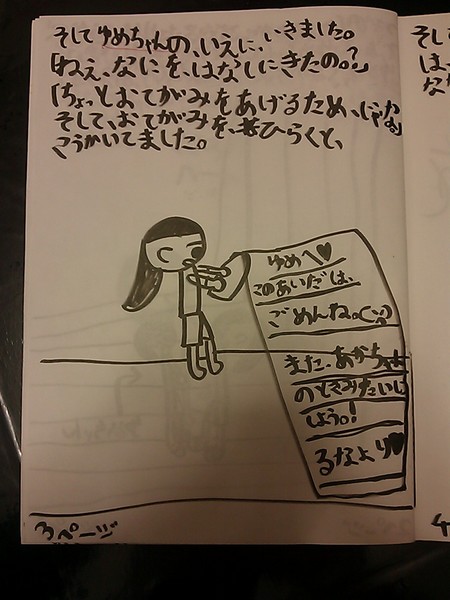 そしてゆめちゃんの、いえに、いきました。
「ねぇ、なにを、はなしにきたの。?」
「ちょっとおてがみをあげるため、じゃあ」
そして、おてがみを、ひらくと、
こうかいてました。
ゆめへ♥
このあいだは、
ごめんね。
また、あかちゃん
のときみたいに
しよう。!
るなより♥
3ページ
そし
は、
な
4